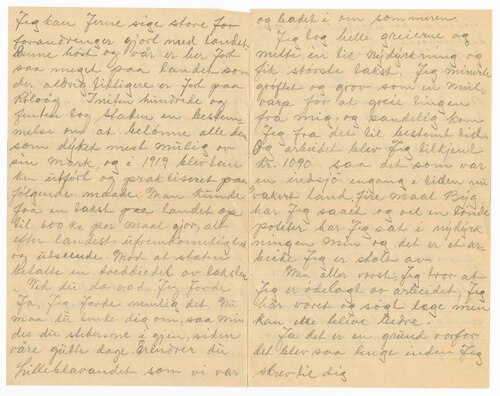 Jeg kan Jerne sige store for
forandringer gjort med landet
Denne höst og vår er her Jort
paa meget paa landet som
der aldrig tidligere er Jort paa
Pilaag Smiten hundrede og
femten tog Staden en bestem
melse om at belønne alle dem
som dyket mest mulig av
sin mark, og i 1919 blev tan
ken utfört og praktiseret paa
fölgende maade. Man kunde
faa en takst paa landet op
til 600 kr per maal gjor, alt
efter landets ufremkomelighet
og utseende. Mod at staten
betalte en treddiedel av taksten
Ved du da vad Jeg Jorde
Ja, Jeg Jorde nemlig det. Nu
maa du tenke dig om, saa min
des du stederne i gjen, siden
våre gutte dage. Erindrer du
Lilleblavandet som vi var
og badet i om sommeren
Jeg tog hele greierne og
meltte in til nydyrkning og
fik störste takst. Jeg minerte
gröftet og grov som en mul
varp för at greie tingen
fra mig, og sandelig kom
Jeg fra det til bestemt tid
Og arbeitet blev Jeg tilkjent
kr. 1090. saa det som var
en indsjö engang i tiden nu
vakert land, fire maal Byg
har Jeg saaed og vel en tönde
poteter har Jeg sat i nydyrk
ningen Min og det er et ar
beide Jeg er stolt av.
Min aller værst, Jeg tror at
Jeg er ödelagt av arbeidet, Jeg
har været og sögt læge men
kan ikke blive bedre.
Ja det er en grund vorfor
det blev saa lenge enden Jeg
skrev til dig